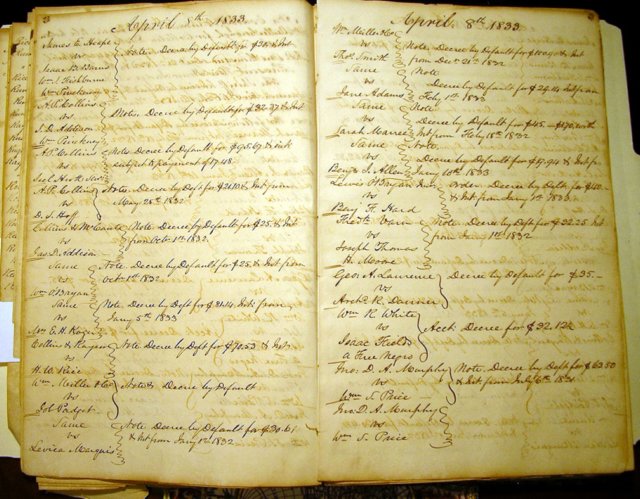 April 8th 1833
vs
Note. Decree by Default for
vs
Wm Pinckney
A. P. Collins
vs
Notes. Decree by Default for $32.37 & Int
J. D. Addison
Wm Pinckney
A. P. Collins
vs
Note. Decree by Default for $95.67 & int
subject to payment of 17.48.
A. P. Collins
vs
Note. Decree by Deft for & Int from
May 28th 1832
D. S. Hoff
Collins &
vs
Note. Decree by Default for $25. & Int
from Oct. 1st 1832.
Jas. D. Addison
Same
vs
Note. Decree by Default for $25. & Int from
Oct. 1st 1832.
Wm O'Bryan
Same
vs
Note. Decree by Deft for Int. from
Jany 5th 1833
Mrs E. H.
Collins &
vs
Note. Decree by Default for $70.53 & Int
H. W. Rice
Wm Miller & Co
vs
Note & Decree by Default
Job Padget
Same
vs
Note Decree by Default for
& Int from Jany 1st 1832
Levica Marquis
April 8th 1833
Wm Miller & Co
vs
Note. Decree by Default for & Int
from Decr 21st 1832
Thos. Smith
Same
vs
Note
Decree by Default for Int from
Feby 1st 1832
Jane Adams
Same
vs
Note.
Decree by Default for $45.— with
Int from Feby 15th 1832
Sarah
Same
vs
Note.
Decree by Default for $17.94 & Int fr
Jany 10th 1832
Benj. S. Allen
Lewis O'Bryan
vs
order. Decree by Deft. for
& Int from Jany 1st 1833.
Benj. F. Hard
vs
Note. Decree by Default for $32.25 Int
from Jany 1st 1832.
Joseph Thomas
H. Moore
Geo: A. Laurence
vs
Decree by Default for $35.—
Archd R. Danner
Wm R. White
vs
Acct. Decree for $32.12½
Isaac Fields
a Free Negro
Jno: D. A. Murphy
vs
Note. Decree by Default for $63.50
& Int from July 6th 1831
Wm S. Price
Jno D. A. Murphy
vs
Wm S. Price